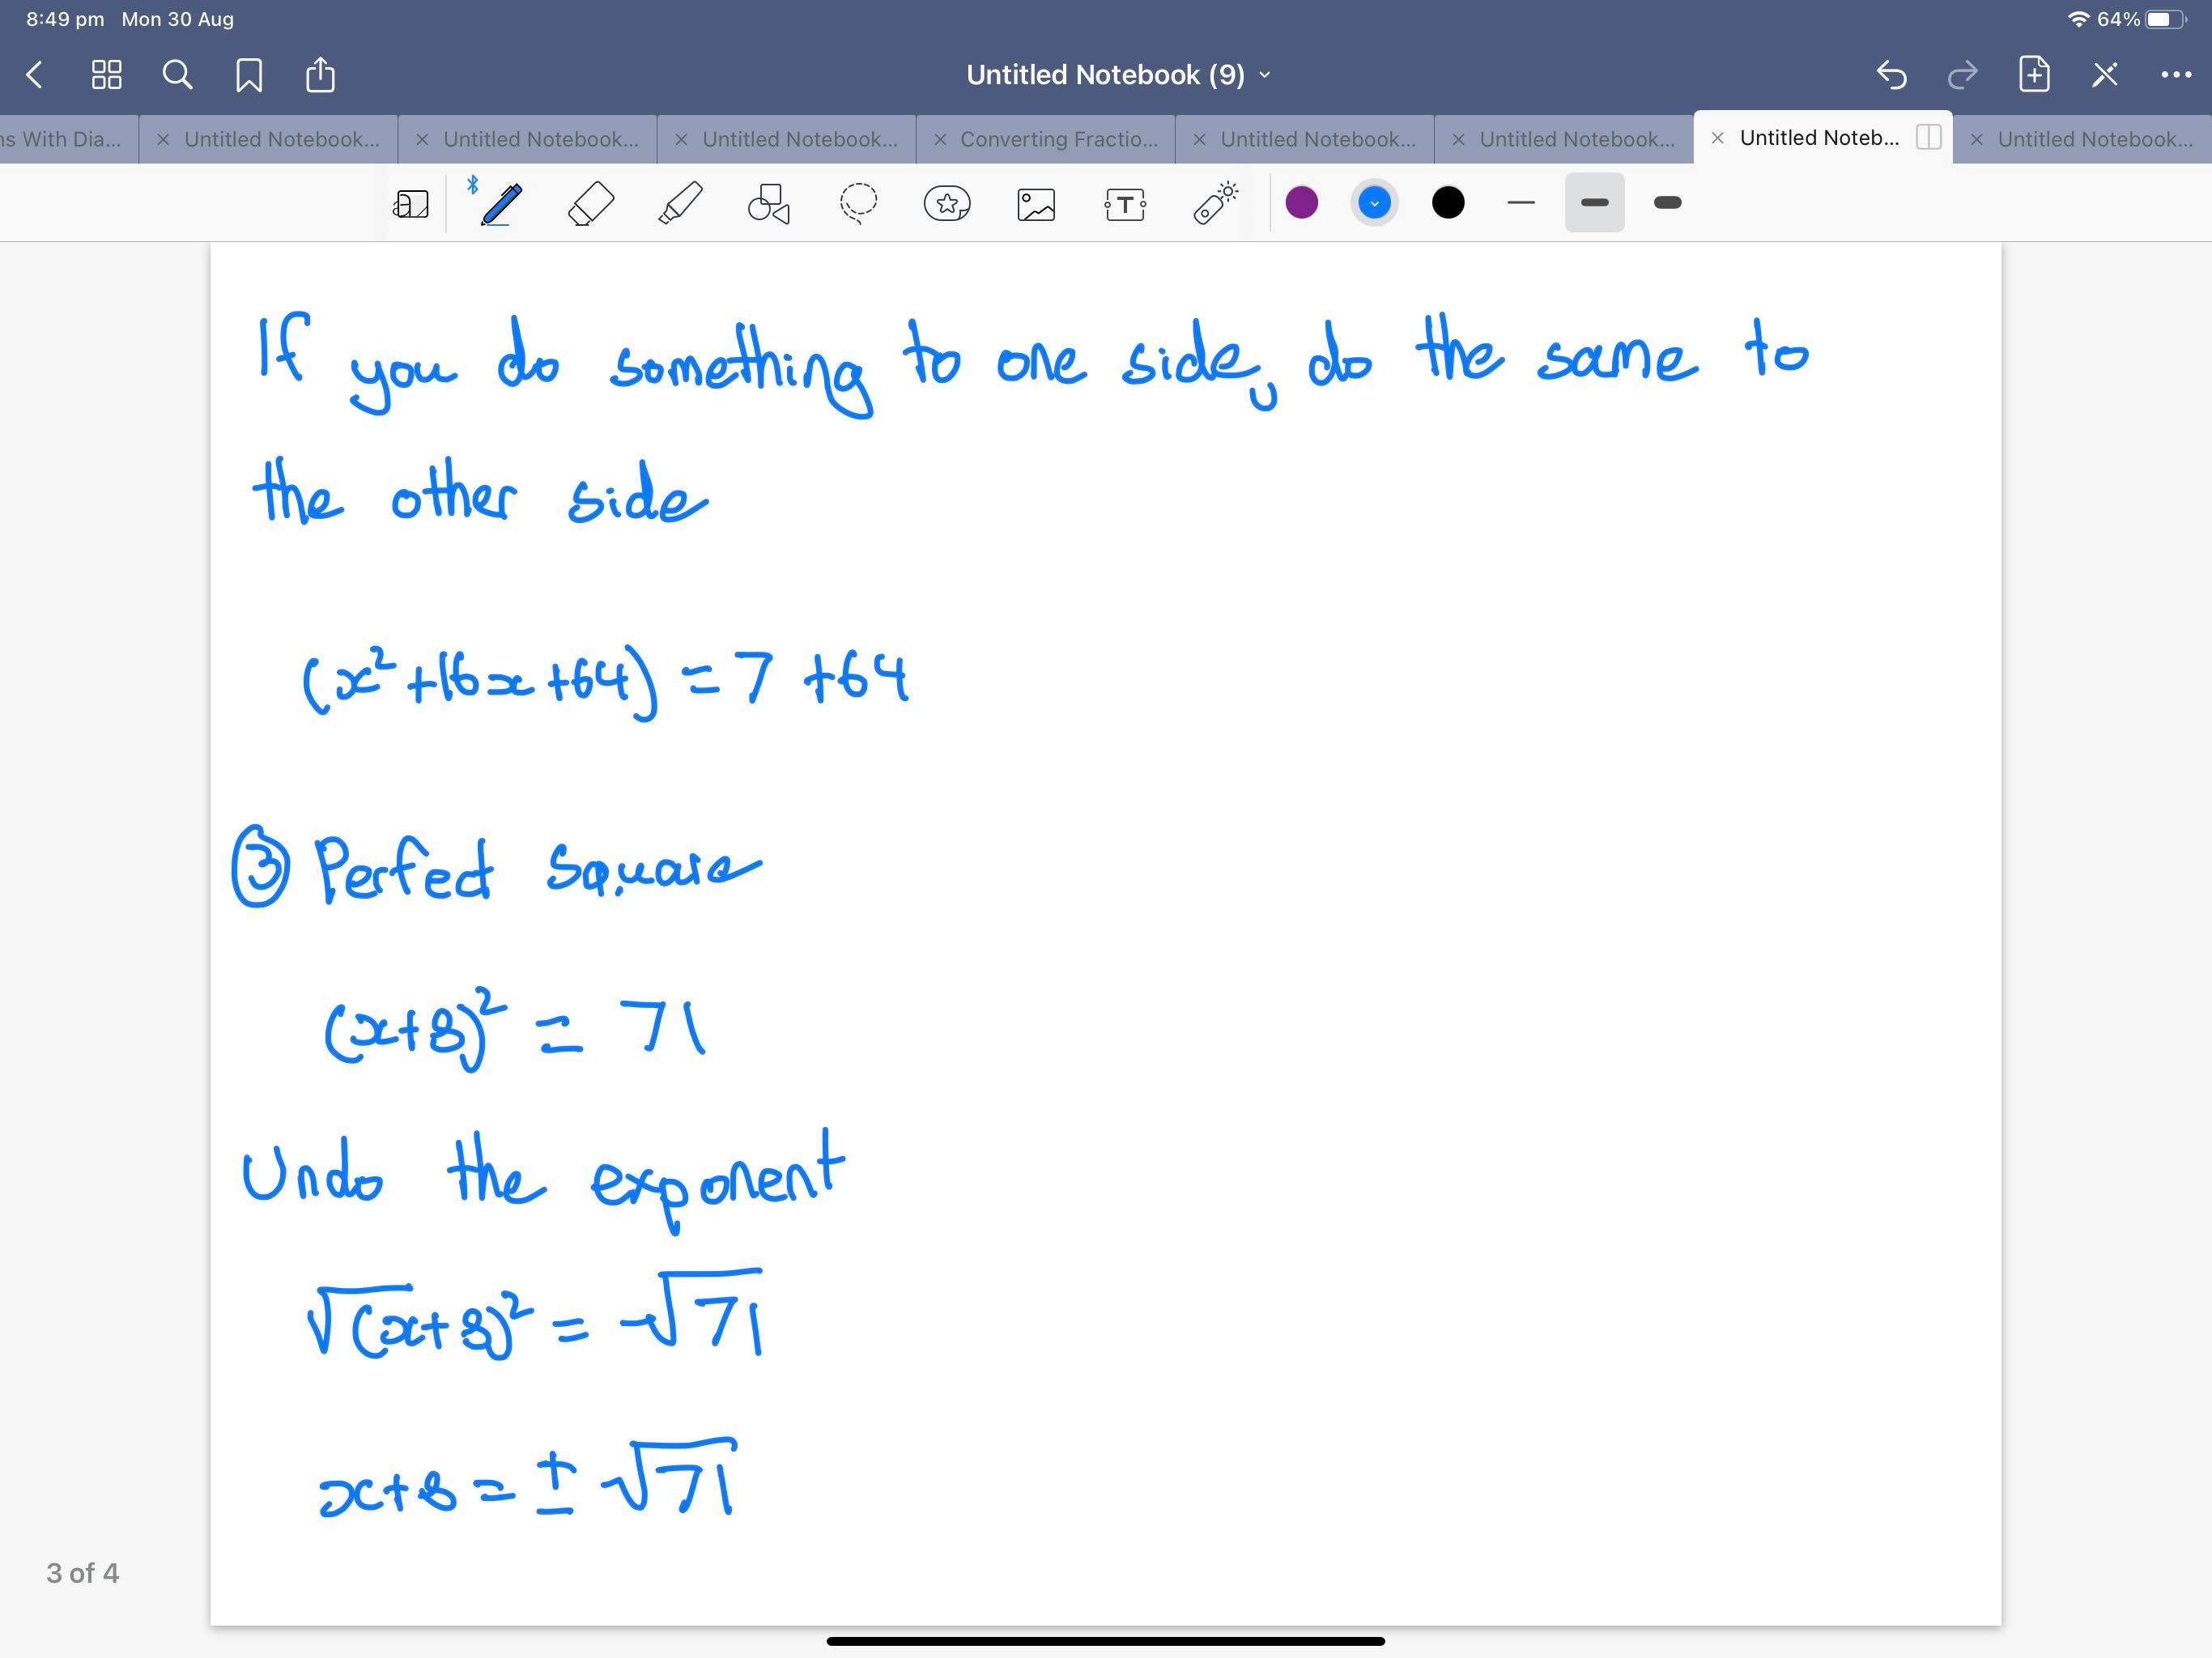 8:49 pm Mon 30 Aug 64%
Untitled Notebook (9)
ns With Dia... Untitled Notebook... Untitled Notebook... Untitled Notebook... Converting Fractio... Untitled Notebook... Untitled Notebook... Untitled Noteb... Untitled Notebook...
If you do something to one side, do the same to
the other side
(x²+16x+64) = 7 +64
③ Perfect Square
(x+8)² = 71
Undo the exponent
√(x+8)² = √71
x+8 = ± √71
3 of 4